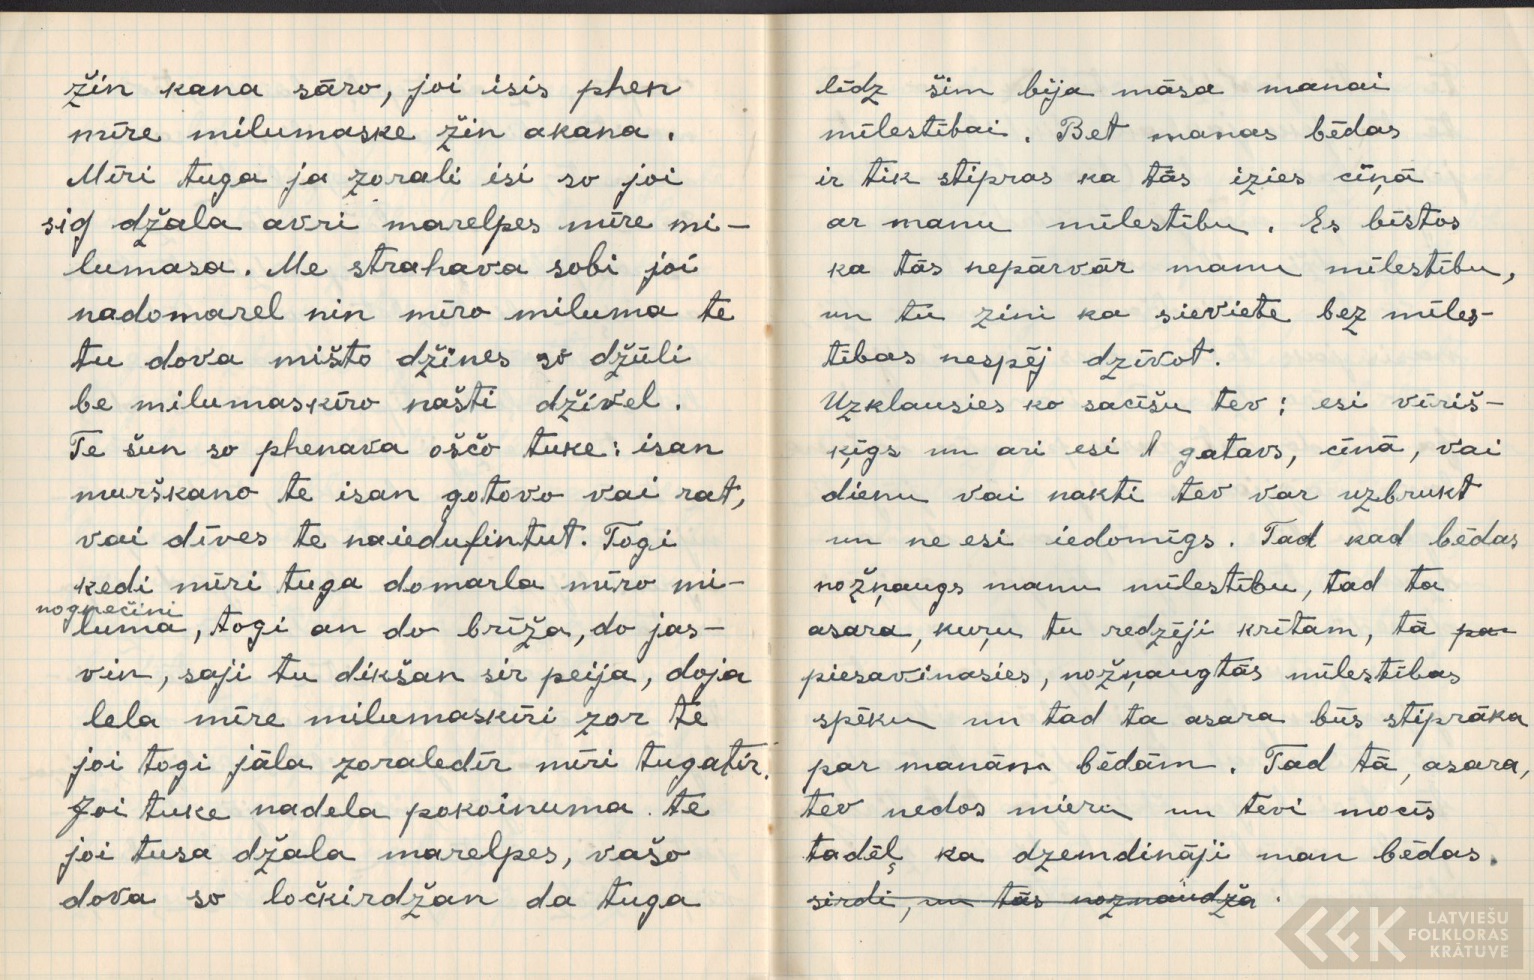 žin kana sāro, joi isis phen
mīre milumaske žin akana.
Mīri tuga ja zorali isi so joi
sig džala avri marelpes mīre mi-
lumasa. Me strahava sobi joi
nadomarel nin mīro miluma te
tu dova mišto džines so džūli
be milumaskīro našti džīvel.
Te šun so phenava oščo tuke: isan
murškano te isan gotovo vai rat,
vai dīves te naiedufintut. Togi
kedi mīri tuga domarla mīro mi-
nogņečini
luma, togi an do brīža, do jas-
vin, saji tu dikšan sir peija, doja
lela mīre milumaskīri zor te
joi togi jāla zoraledīr mīri tugatīr.
Joi tuke nadela pokoinuma te
joi tusa džala marelpes, vašo
dova so ločkirdžan da tuga
līdz šim bija māsa manai
mīlestībai. Bet manas bēdas
ir tik stipras ka tās izies cīņā
ar manu mīlestību. Es bīstos
ka tās nepārvār manu mīlestību,
un tu zini ka sieviete bez mīles-
tības nespēj dzīvot.
Uzklausies ko sacīšu tev: esi vīriš-
ķīgs un ari esi gatavs, cīnā, vai
dienu vai nakti tev var uzbrukt
un ne esi iedomīgs. Tad kad bēdas
nožņaugs manu mīlestību, tad ta
asara, kuŗu tu redzēji krītam, tā pa
piesavinasies, nožņaugtās mīlestības
spēku un tad ta asara būs stiprāka
par manām bēdām. Tad tā, asara,
tev nedos mieru un tevi mocīs
tadēļ ka dzemdināji man bēdas.
sirdi, un tās noznaudža.
LATVIEŠU
FOLKLORAS
KRĀTUVE